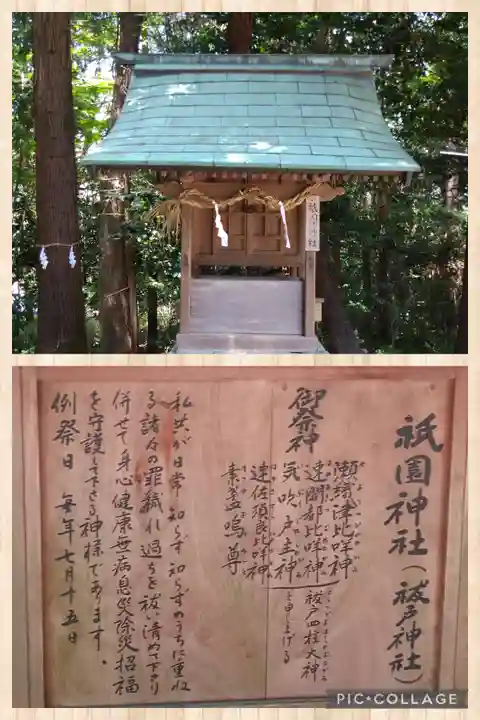 祇園神社
祇園神社(祓戸神社)
御祭神
瀬織津比咩神
速開都比咩神
気吹戸主神
速佐須良比咩神
素盞嗚尊
祓戸四柱大神
と申し上げる
私共が日常 知らず知らずのうちに重ね
る諸々の罪穢れ過ちを祓い清めて下さり
併せて身心健康無病息災除災招福
を守護して下さる神様であります。
例祭日 毎年七月十五日
PIC•COLLAGE